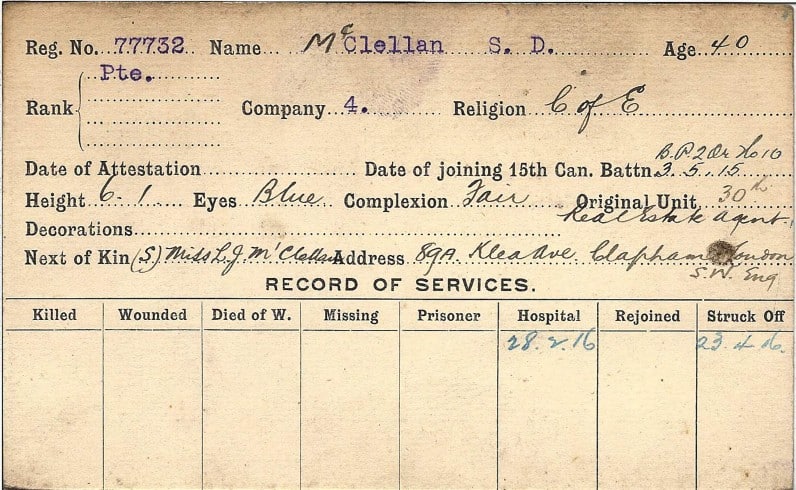 Reg. No. 77732 Name McClellan S. D. Age 40
Pte.
Rank Company 4. Religion C of E
B.P. 2 Or No 10
Date of Attestation Date of joining 15th Can. Battn. 3.5.15
Height 6-1 Eyes Blue Complexion Fair Original Unit 30th
Decorations Real Estate Agent
Next of Kin (S) Miss L.J. McClellan Address 89A. Klea Ave. Clapham London
S.W. Eng
RECORD OF SERVICES.
Killed Wounded Died of W. Missing Prisoner Hospital Rejoined Struck Off
28.2.16 23.4.16.